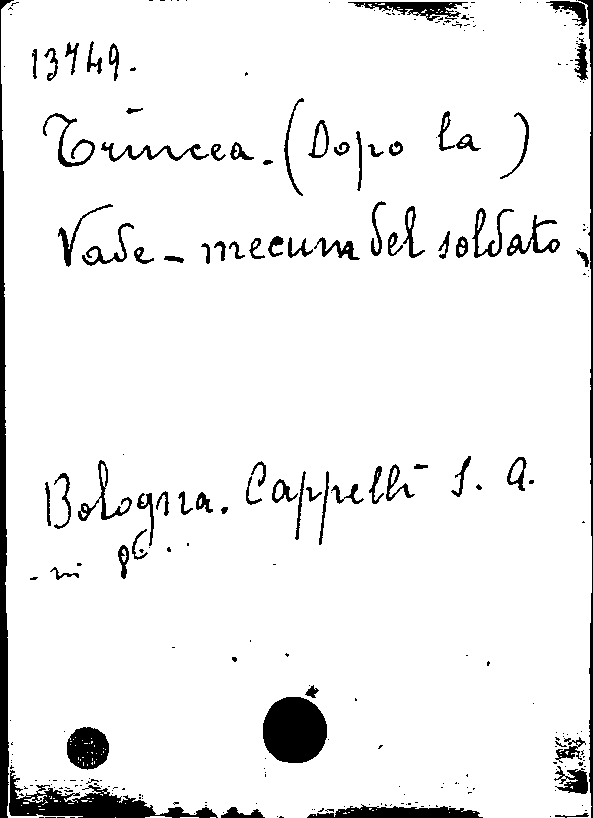 13749.
Trincea. (Dopo la)
Vade-mecum del soldato
Bologna. Cappelli S. A.
- in 8°.